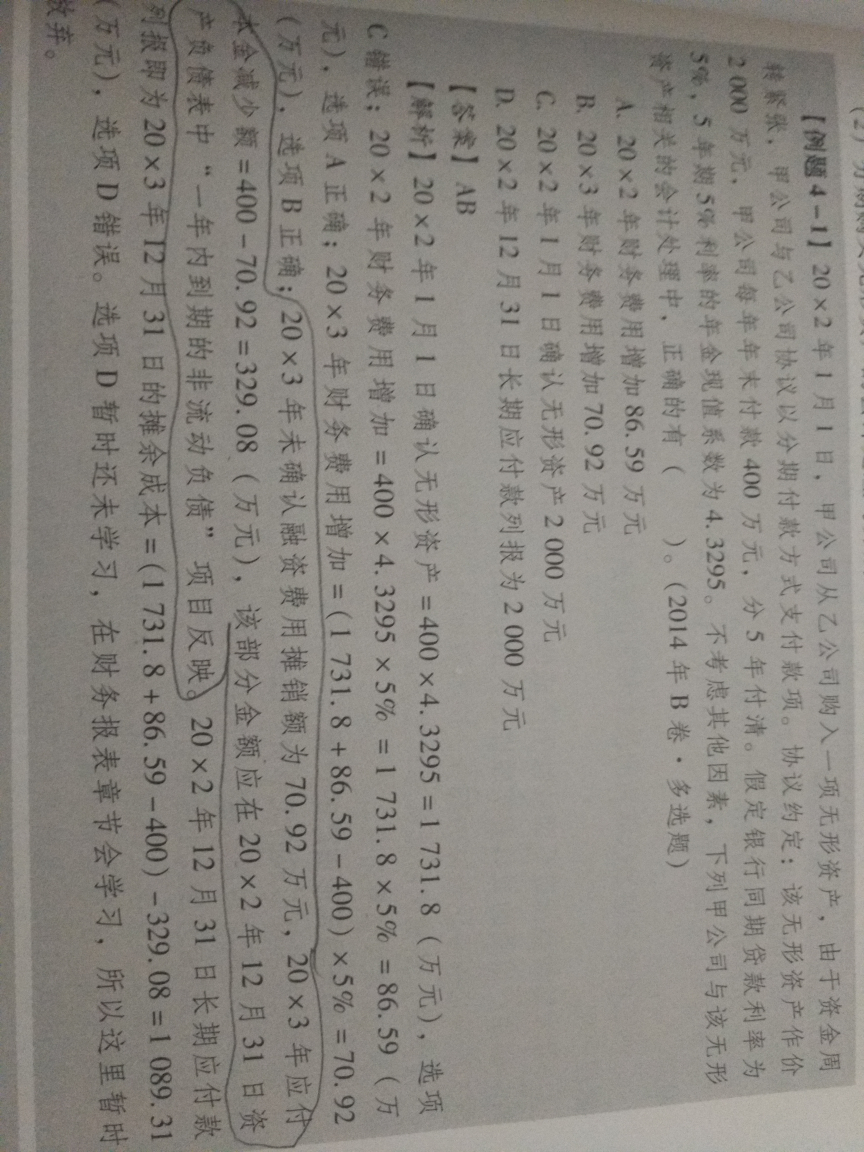 【例题4-1】20×2年1月1日，甲公司从乙公司购入一项无形资产，由于资金周
转紧张，甲公司与乙公司协议以分期付款方式支付款项。协议约定：该无形资产作价
2 000万元，甲公司每年年末付款400万元，分5年付清。假定银行同期贷款利率为
5%，5年期5%利率的年金现值系数为4.3295。不考虑其他因素，下列甲公司与该无形
资产相关的会计处理中，正确的有（　　）。（2014年B卷·多选题）
A. 20×2年财务费用增加86.59万元
B. 20×3年财务费用增加70.92万元
C. 20×2年1月1日确认无形资产2 000万元
D. 20×2年12月31日长期应付款列报为2 000万元
【答案】AB
【解析】20×2年1月1日确认无形资产=400×4.3295=1 731.8（万元），选项
C错误；20×2年财务费用增加=400×4.3295×5%=1 731.8×5%=86.59（万
元），选项A正确；20×3年财务费用增加=(1 731.8+86.59-400)×5%=70.92
（万元），选项B正确；20×3年未确认融资费用摊销额为70.92万元，20×3年应付
本金减少额=400-70.92=329.08（万元），该部分金额应在20×2年12月31日资
产负债表中“一年内到期的非流动负债”项目反映。20×2年12月31日长期应付款
列报即为20×3年12月31日的摊余成本=(1 731.8+86.59-400)-329.08=1 089.31
（万元），选项D错误。选项D暂时还未学习，在财务报表章节会学习，所以这里暂时
放弃。